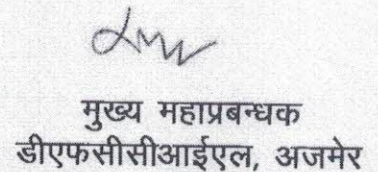 मुख्य महाप्रबन्धक
डीएफसीसीआईएल, अजमेर